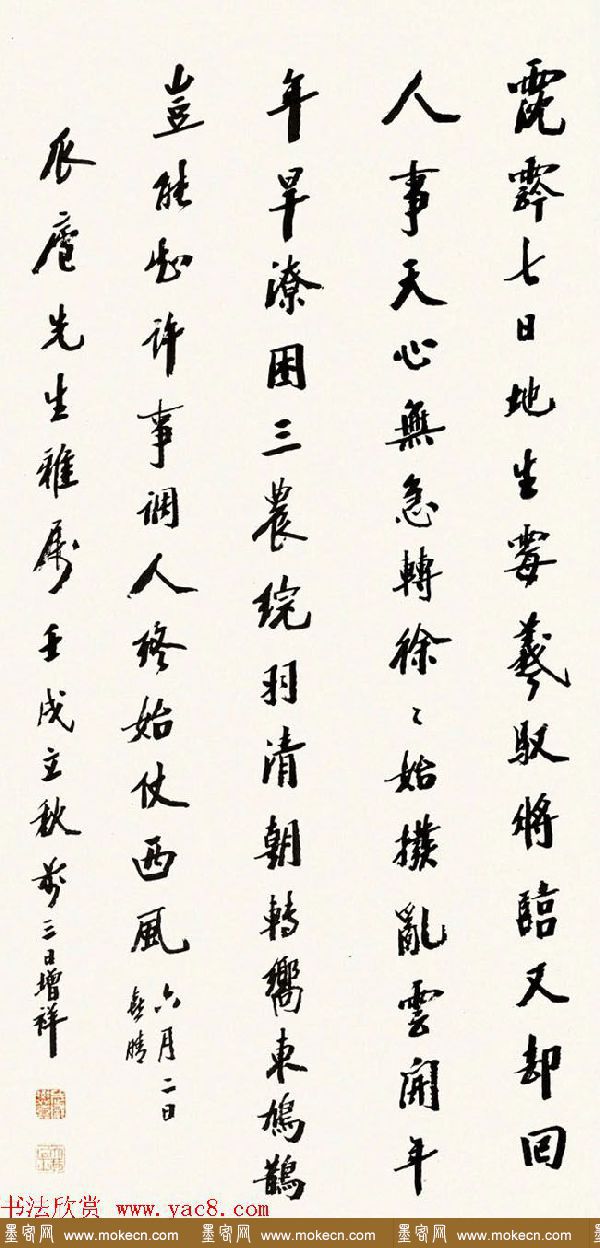 霃霒七日地生霉羲馭將臨又却回
人事天心無急轉徐〻始撥亂雲開年
年旱潦困三農羽清朝轉嚮東鳩鵲
豈能知許事調人終始仗西風
六月二日
喜晴
辰庵先生雅屬壬戌立秋前三日增祥
书法欣赏 www.yac8.com
墨客网 www.mokecn.com 墨客网 www.mokecn.com 墨客网 www.mokecn.com